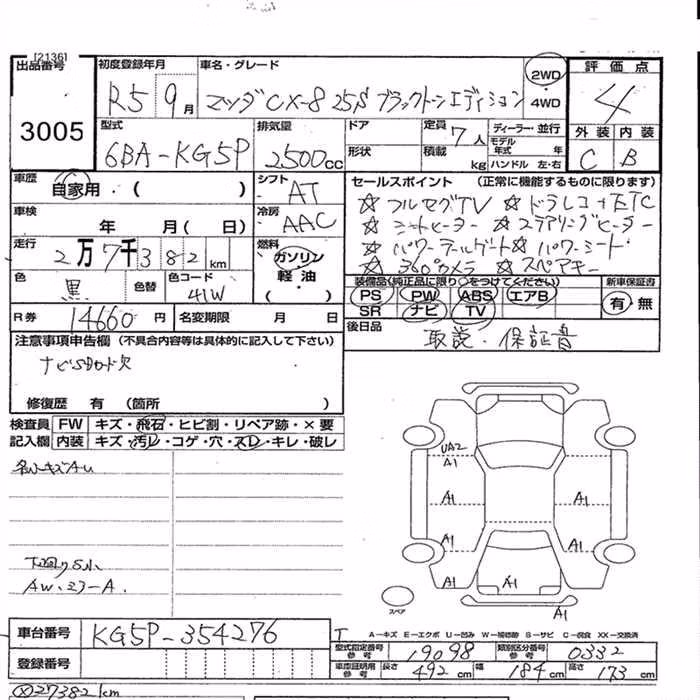 [2136]
出品番号 初度登録年月 車名・グレード 2WD 評価点
3005 R5 9月 マツダCX-8 25S ブラックトーンエディション 4WD 4
型式 排気量 ドア 定員 7人 ディーラー・並行 外装 内装
6BA-KG5P 2500cc 形状 積載 kg モデル年式 年 ハンドル 左・右 C B
車歴 自家用 ( ) シフト AT セールスポイント (正常に機能するものに限ります)
車検 年 月(日) 冷房 AAC ☆フルセグTV ☆ドラレコ+ETC
☆シートヒーター ☆ステアリングヒーター
走行 2万7千382km 燃料 ガソリン 軽油 ( ) ☆パワーテールゲート ☆パワーシート
☆360°カメラ ☆スペアキー
色 黒 色替 色コード 41W 装備品(純正品に限り○をつけてください) 新車保証書
PS PW ABS エアB 有・無
SR ナビ TV
R券 14660円 名変期限 月 日 後日品 取説・保証書
注意事項申告欄 (不具合内容等は具体的に記入して下さい)
ナビSDカード欠
修復歴 有 (箇所 )
検査員 FW キズ・飛石・ヒビ割・リペア跡・×要
記入欄 内装 キズ・汚レ・コゲ・穴・スレ・キレ・破レ
UA2
A1
A1 A1
A1 A1
A1 A1
スペア A1
下廻りS小
AW.ミラーA
車台番号 KG5P-354276
登録番号
A−キズ E−エクボ U−凹み W−補修跡 S−サビ C−腐食 XX−交換済
型式指定番号 参考 19098 類別区分番号 参考 0332
車庫証明用 参考 長さ 492cm 幅 184cm 高さ 173cm
27382km